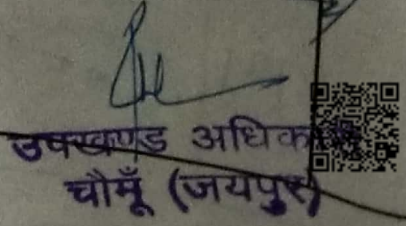 उपखण्ड अधिकारी
चौमूँ (जयपुर)